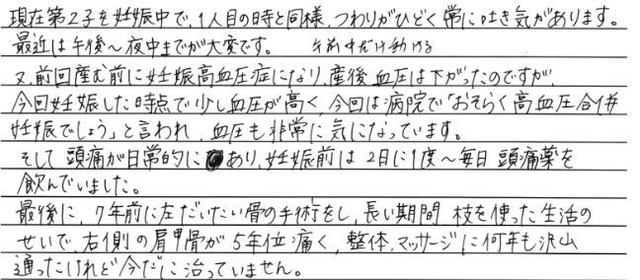 現在第2子を妊娠中で、1人目の時と同様、つわりがひどく常に吐き気があります。
最近は午後〜夜中までが大変です。 午前中だけ動ける
又、前回産む前に妊娠高血圧症になり、産後血圧は下がったのですが、
今回妊娠した時点で少し血圧が高く、今回は病院で「おそらく高血圧合併
妊娠でしょう」と言われ、血圧も非常に気になっています。
そして頭痛が日常的にあり、妊娠前は2日に1度〜毎日頭痛薬を
飲んでいました。
最後に、7年前に左だいたい骨の手術をし、長い期間、枝を使った生活の
せいで、右側の肩甲骨が5年位痛く、整体、マッサージに何年も沢山
通ったけれど今だに治っていません。